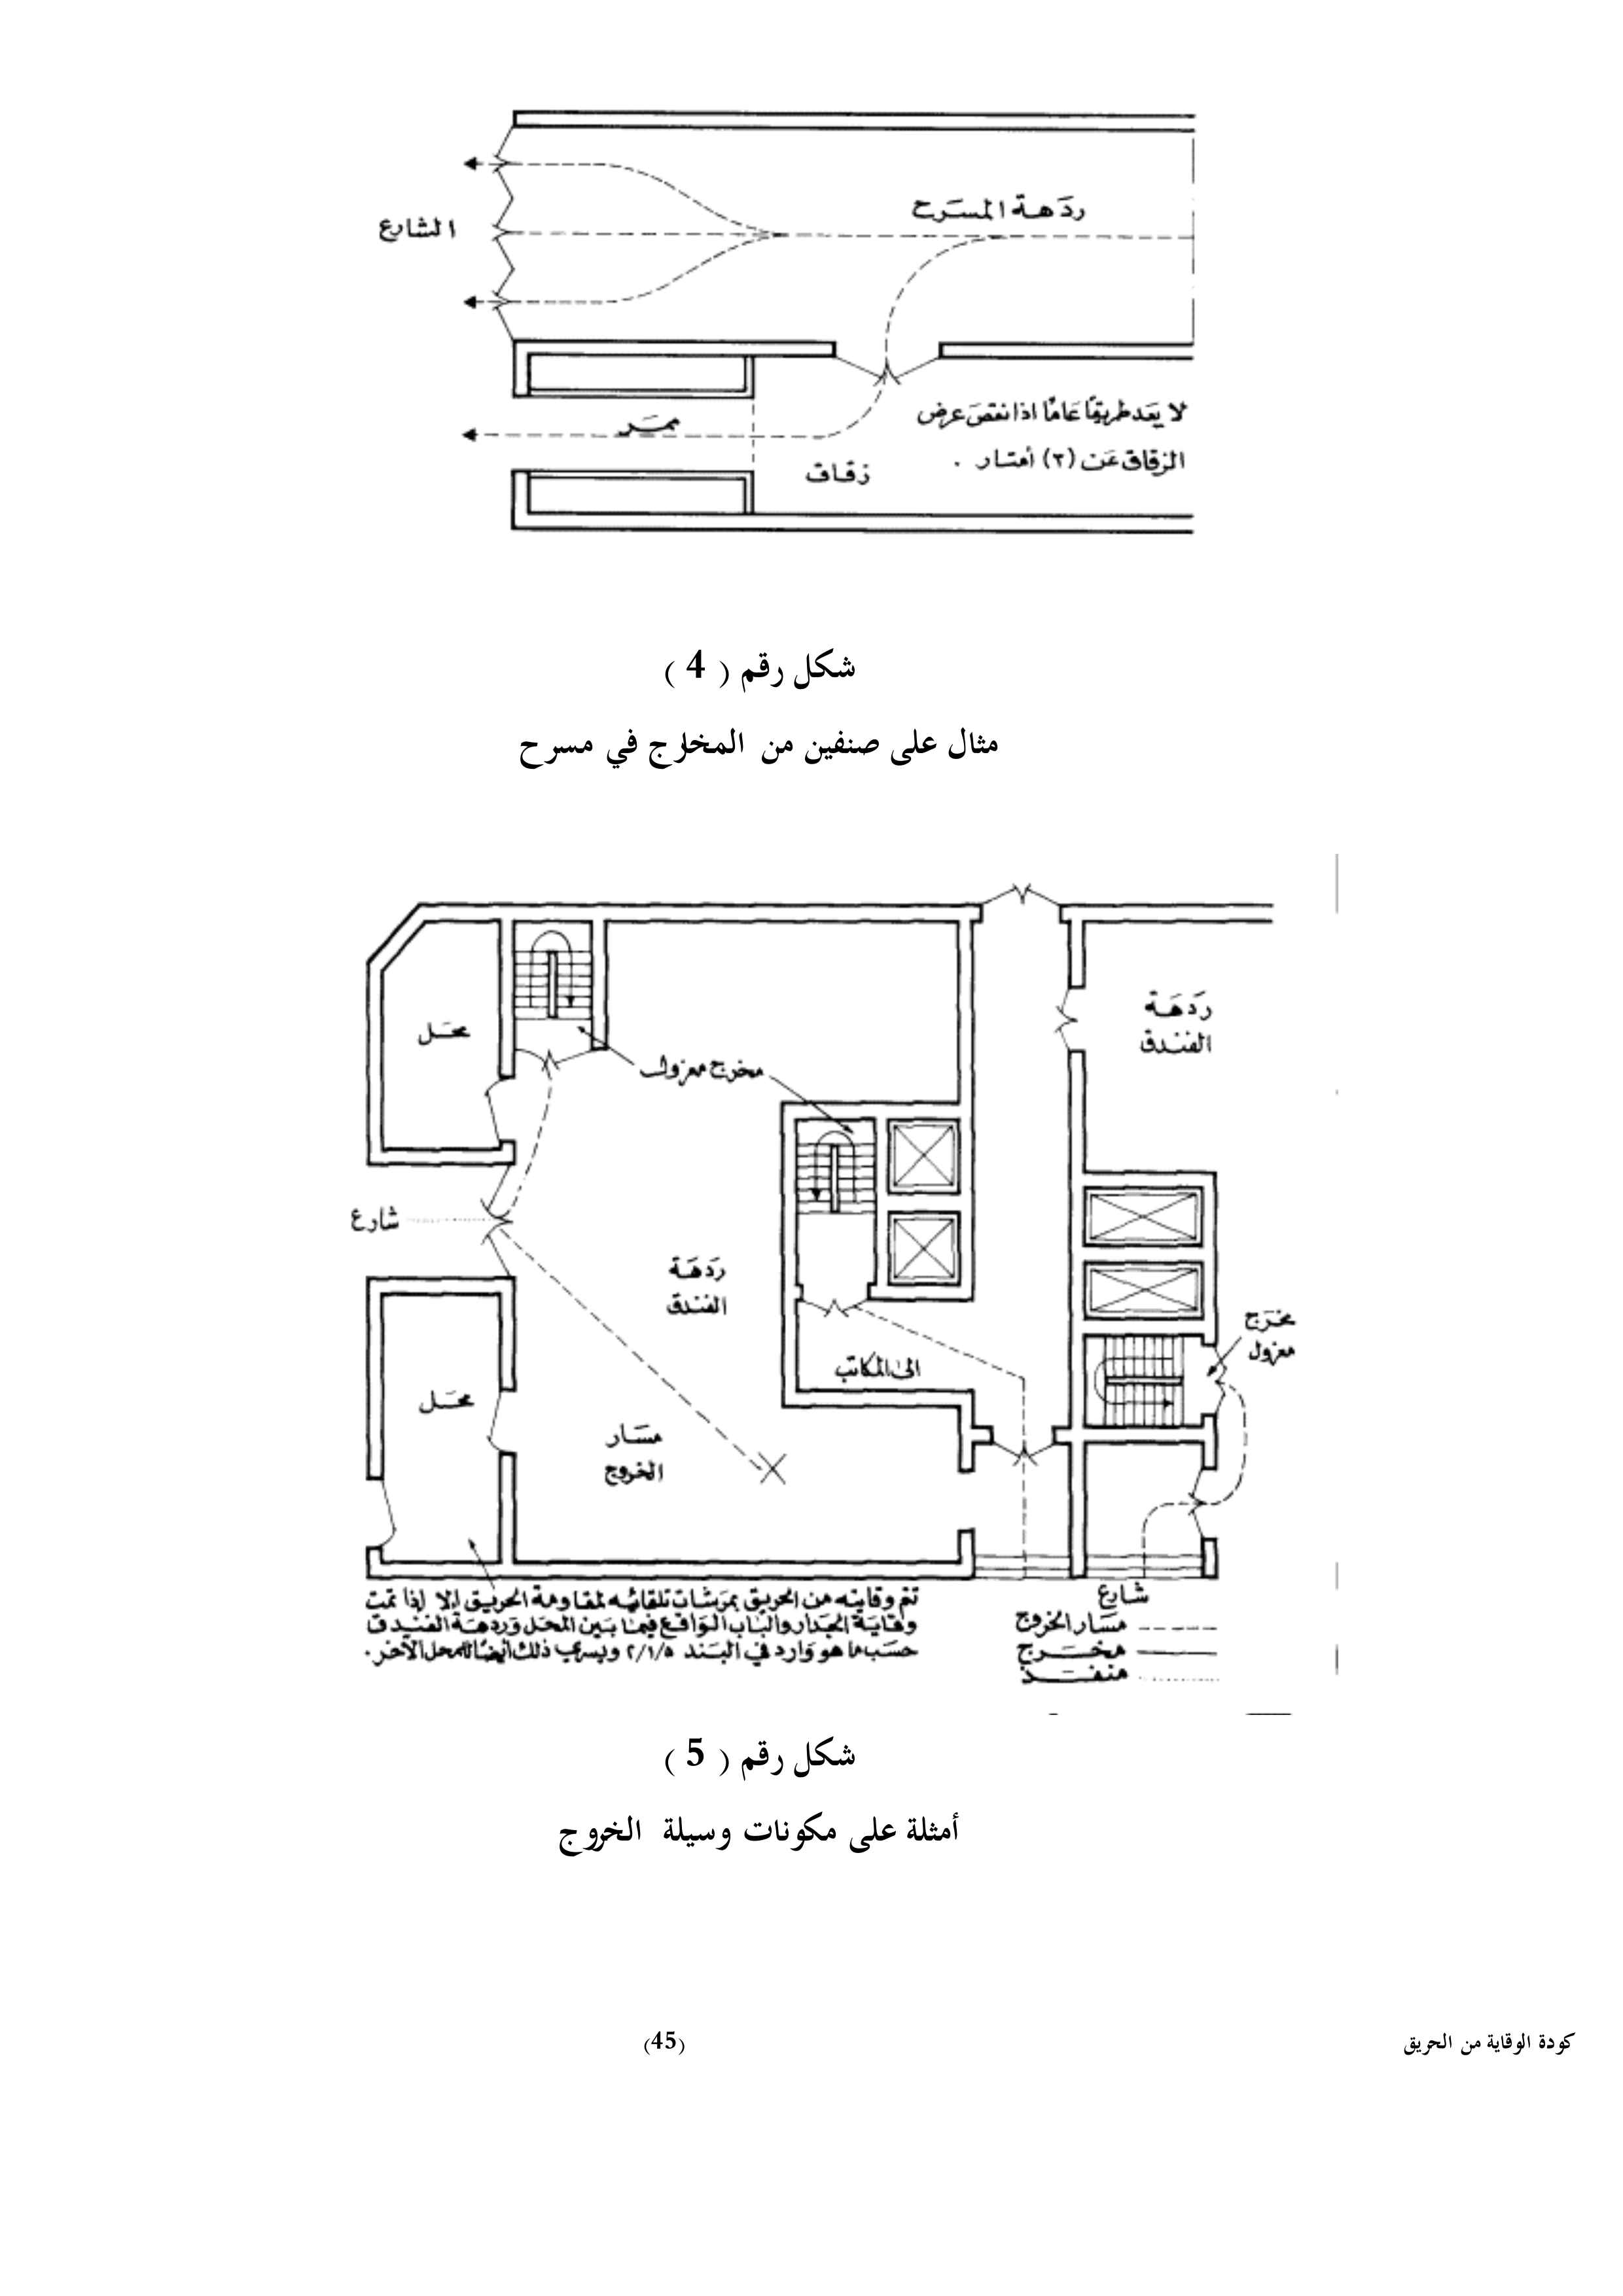 ردهة المسرح
الشارع
لا يعد طريقًا عامًا اذا نقص عرض
الزقاق عن (٣) أمتار .
ممر
زقاق
شكل رقم ( 4 )
مثال على صنفين من المخارج في مسرح
ردهة
الفندق
محل
مخرج معزول
شارع
ردهة
الفندق
مخرج
معزول
الى المكاتب
محل
مسار
الخروج
تتم وقايته من الحريق بمرشات تلقائيه لمقاومة الحريق إلا إذا تمت
وقاية الجدار والباب الواقع فيما بين المحل وردهة الفندق
حسب ما هو وارد في البند ٢/١/٥ ويسري ذلك أيضًا للمحل الآخر .
شارع
مسار الخروج
مخرج
منفذ
شكل رقم ( 5 )
أمثلة على مكونات وسيلة الخروج
كودة الوقاية من الحريق
(45)